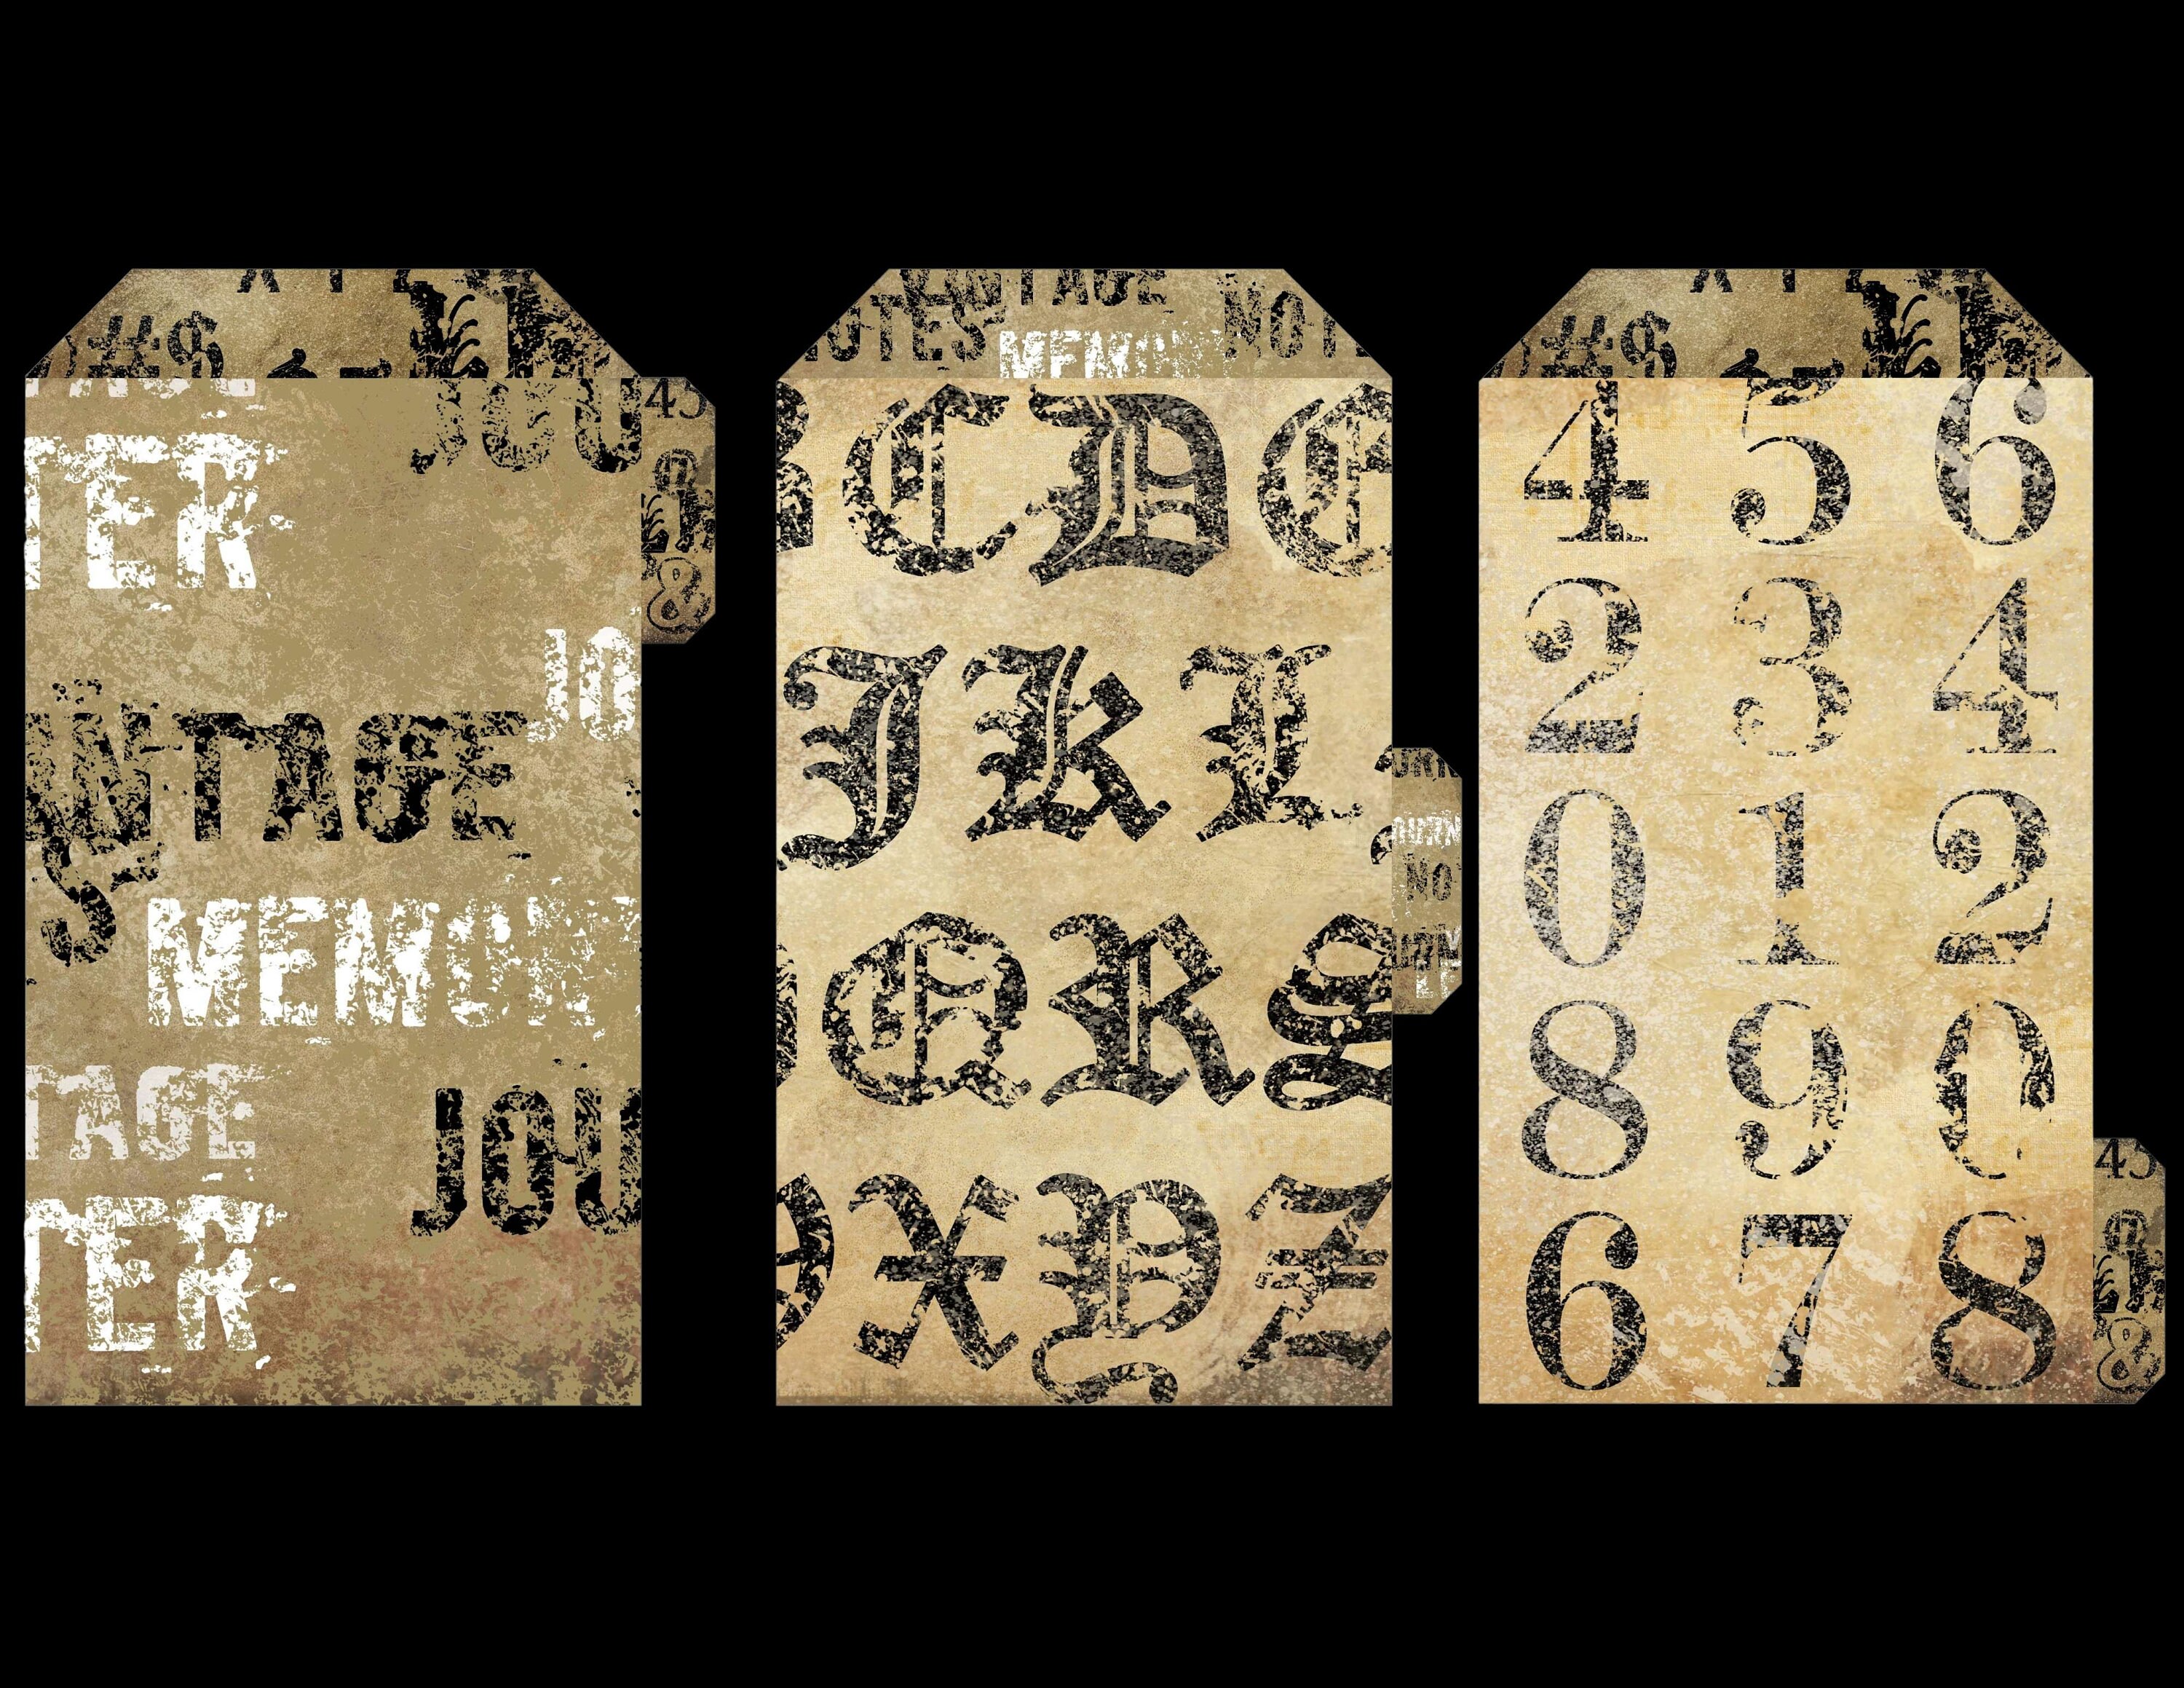 #$
TAGE
JOU
45
TER
&
JO
INTAGE
S
MEMOR
TAGE
JOU
TER
NTAGE
NOTES NOT
MEMOR
B C D C
J K L
Q R S
X Y Z
URN
OURN
NO
LE
#$
4 5 6
2 3 4
0 1 2
8 9 0
6 7 8
45
&